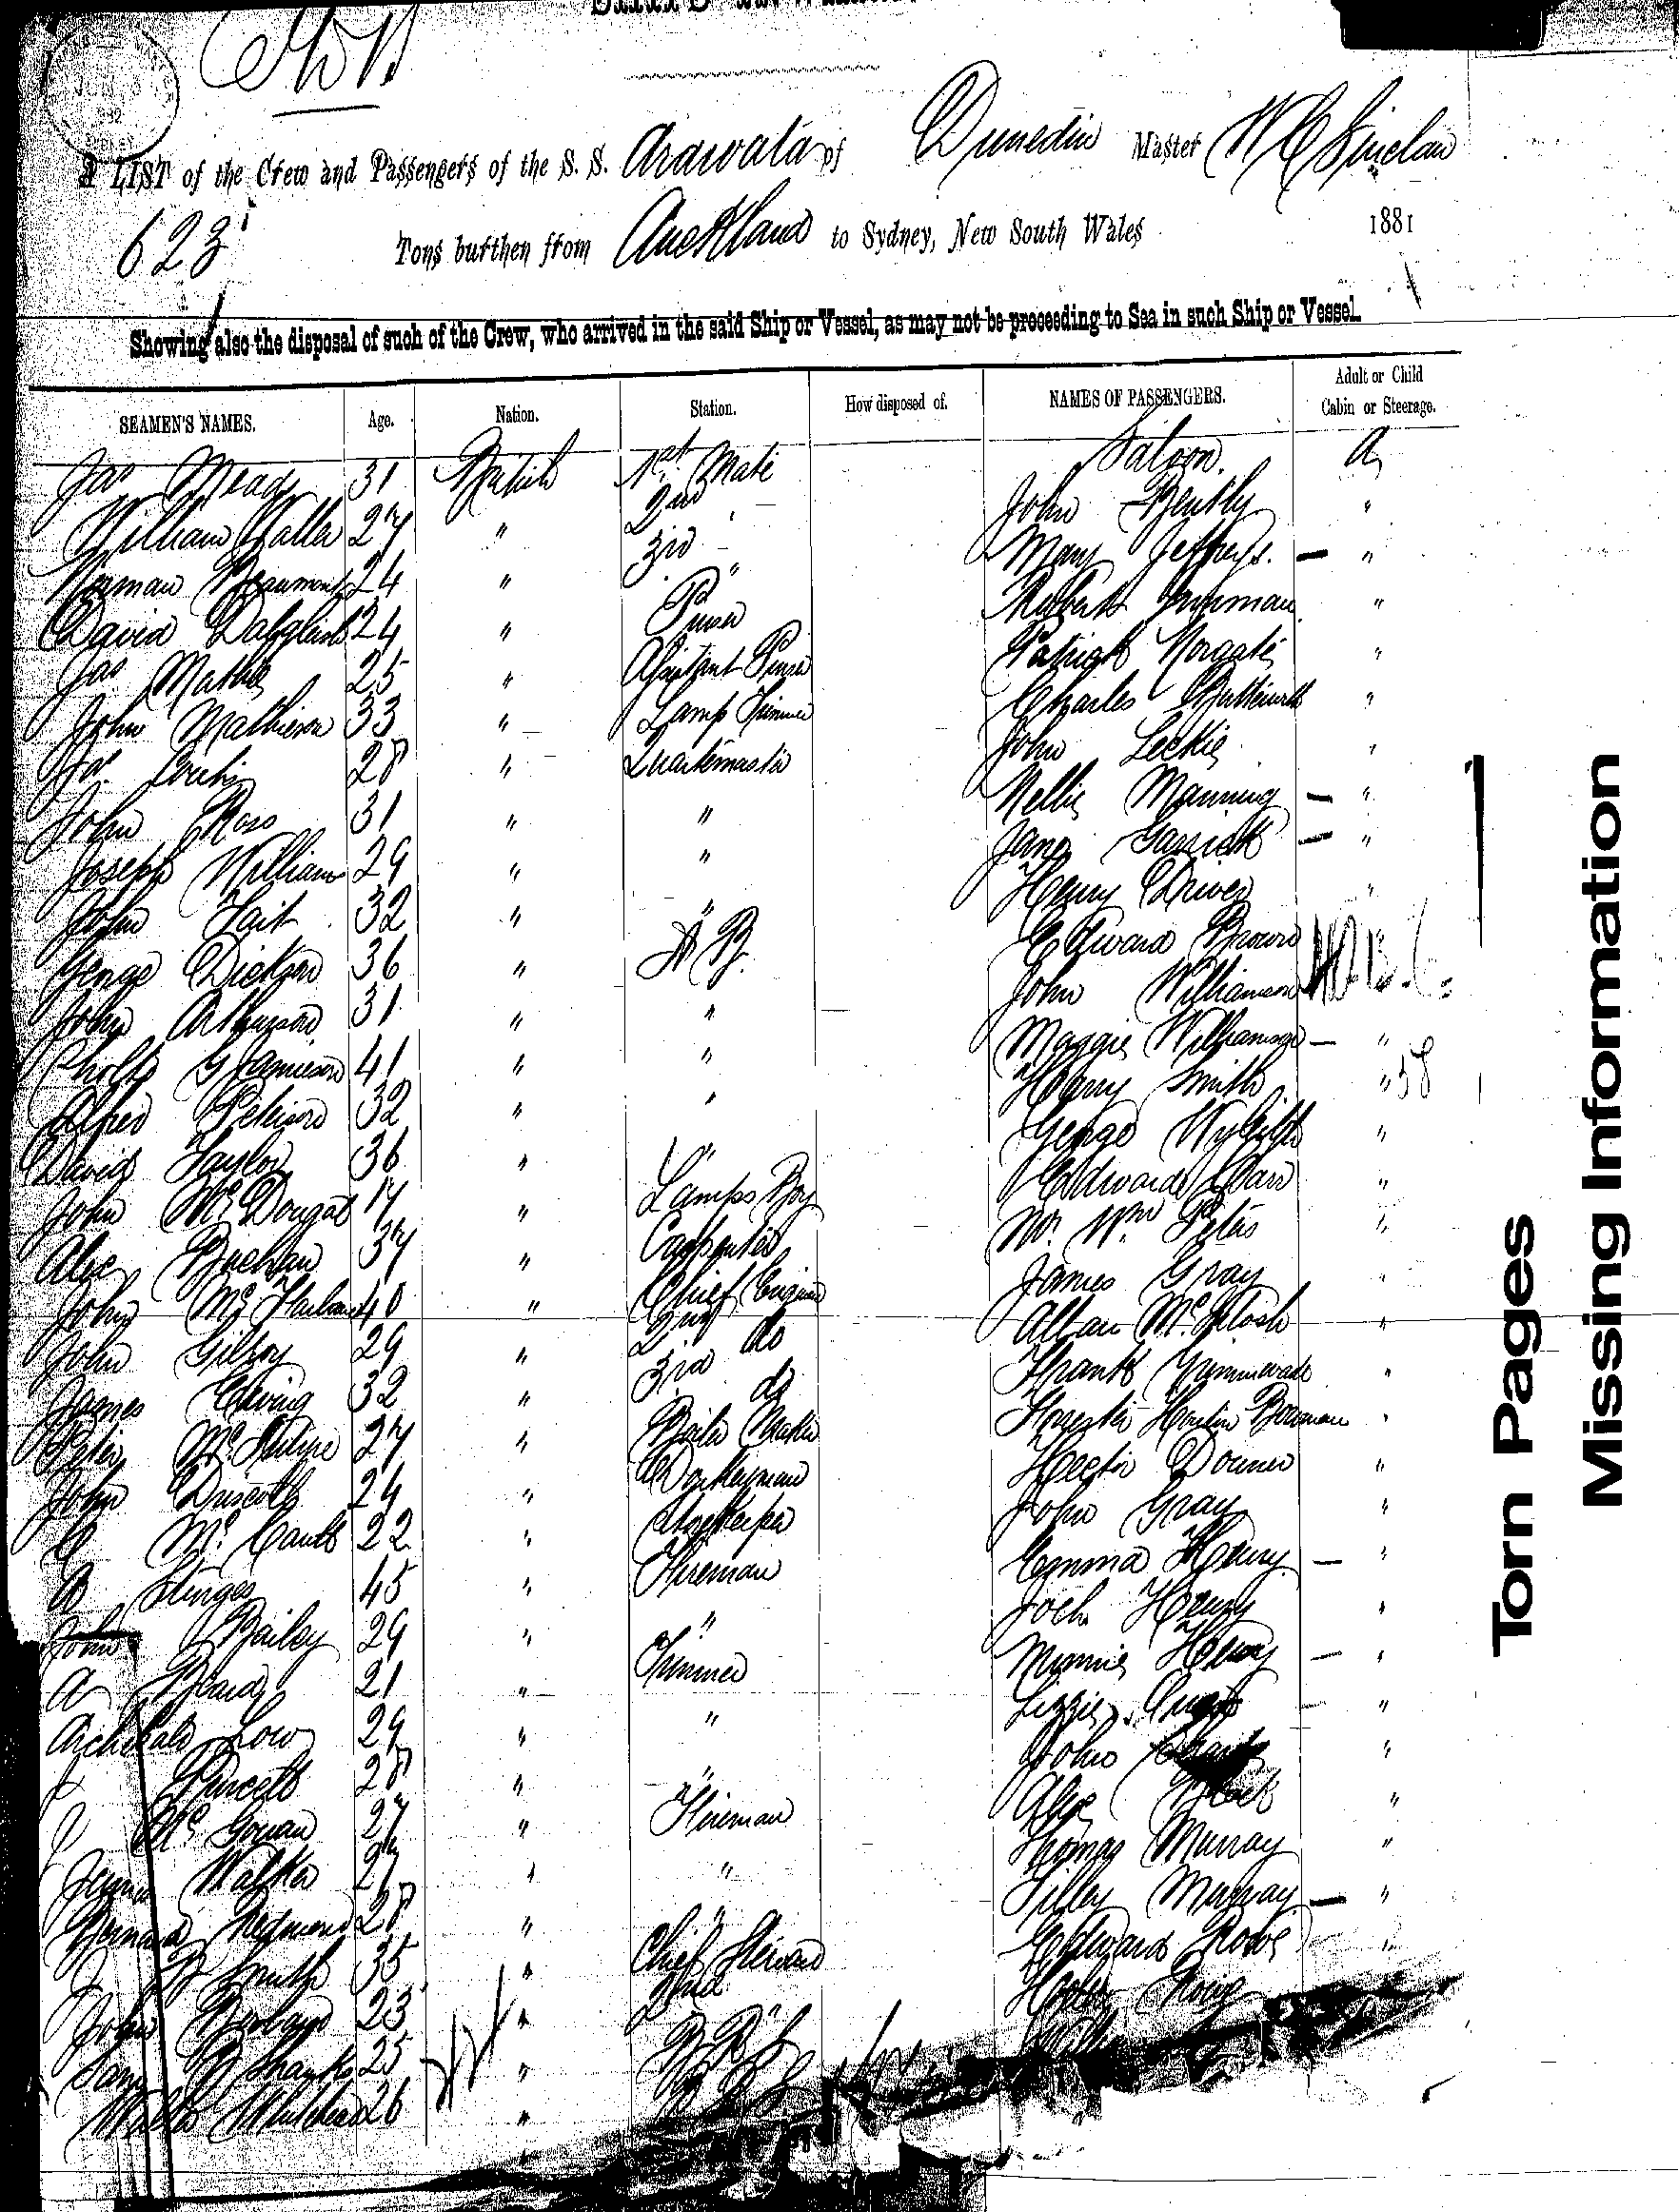 A LIST of the Crew and Passengers of the S. S. Arawata of Dunedin Master W C Sinclair
623 Tons burthen from Auckland to Sydney, New South Wales 1881
Showing also the disposal of such of the Crew, who arrived in the said Ship or Vessel, as may not be proceeding to Sea in such Ship or Vessel.
SEAMEN'S NAMES. Age. Nation. Station. How disposed of. NAMES OF PASSENGERS. Adult or Child Cabin or Steerage.
Saloon. A
Jas Mead 31 British 1st Mate John Bently "
William Waller 27 " 2nd " Mary Jeffreys. — "
Norman Beaumont 24 " 3rd " Robert "
David Dalgleish 24 " Purser Patrick Norgate "
Jas Mathie 25 " Assistant Purser Charles Butterworth "
John Mathieson 33 " Lamp Trimmer John Leckie "
Jas 28 " Quartermaster Nellie Manning — "
John Ross 31 " " Jane Garrick — "
Joseph Williams 29 " " Henry Driver "
John Tait 32 " " Edward Brown
George Dickson 36 " A B. John Williamson
John Arthurson 31 " " Maggie Williamson — "
G Jamieson 41 " " Henry Smith " 38
Alfred Peterson 32 " " George "
David Taylor 36 " " Edward Carr "
John McDougal 17 " Lamps Boy Mr. Wm Peters "
Alec Buchan 37 " Carpenter James Gray "
John 40 " Chief Engineer Allan McIntosh "
John Gilroy 29 " 2nd do Frank Grimwade "
James Ewing 32 " 3rd do Bowman "
Peter 27 " Boiler Maker Hector Downer "
John Driscoll 24 " Donkeyman John Gray "
Mc 22 " Storekeeper Emma Henry — "
Sturges 45 " Fireman Henry "
John Bailey 29 " " Minnie Henry — "
A Beard 21 " Trimmer Lizzie — "
Archibald Low 29 " " John "
J Purcell 28 " " Alex "
J McGowan 27 " Fireman Thomas Murray "
James Walker 27 " " Tilley Murray — "
Bernard Redmond 28 " " Edward Rowe "
J B Smith 35 " Chief Steward
John 23 " 2nd
Saml Shanks 25 "
Whitehead 26 "
Torn Pages
Missing Information